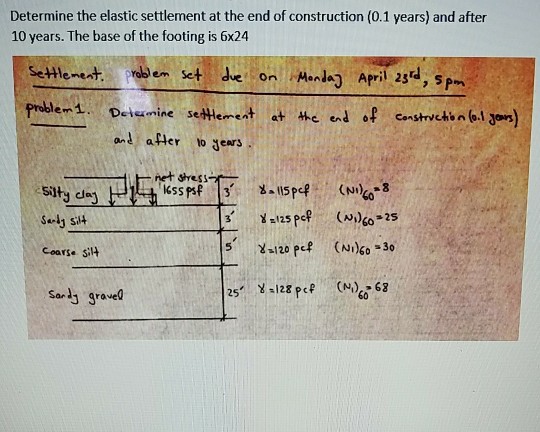 Determine the elastic settlement at the end of construction (0.1 years) and after
10 years. The base of the footing is 6x24
Settlement. problem set due on Monday April 23rd, 5 pm
problem 1. Determine settlement at the end of construction (0.1 years)
and after 10 years.
net stress
1655 psf
Silty clay 3' γ=115pcf (N1)60=8
Sandy silt 3' γ=125pcf (N1)60=25
Coarse silt 5' γ=120 pcf (N1)60=30
Sandy gravel 25' γ=128 pcf (N1)60=68